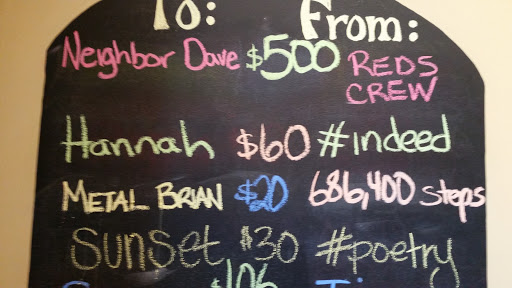 To: From:
Neighbor Dave $500 REDS
CREW
Hannah $60 #indeed
METAL BRIAN $20 686,400 Steps
SunSet $30 #poetry